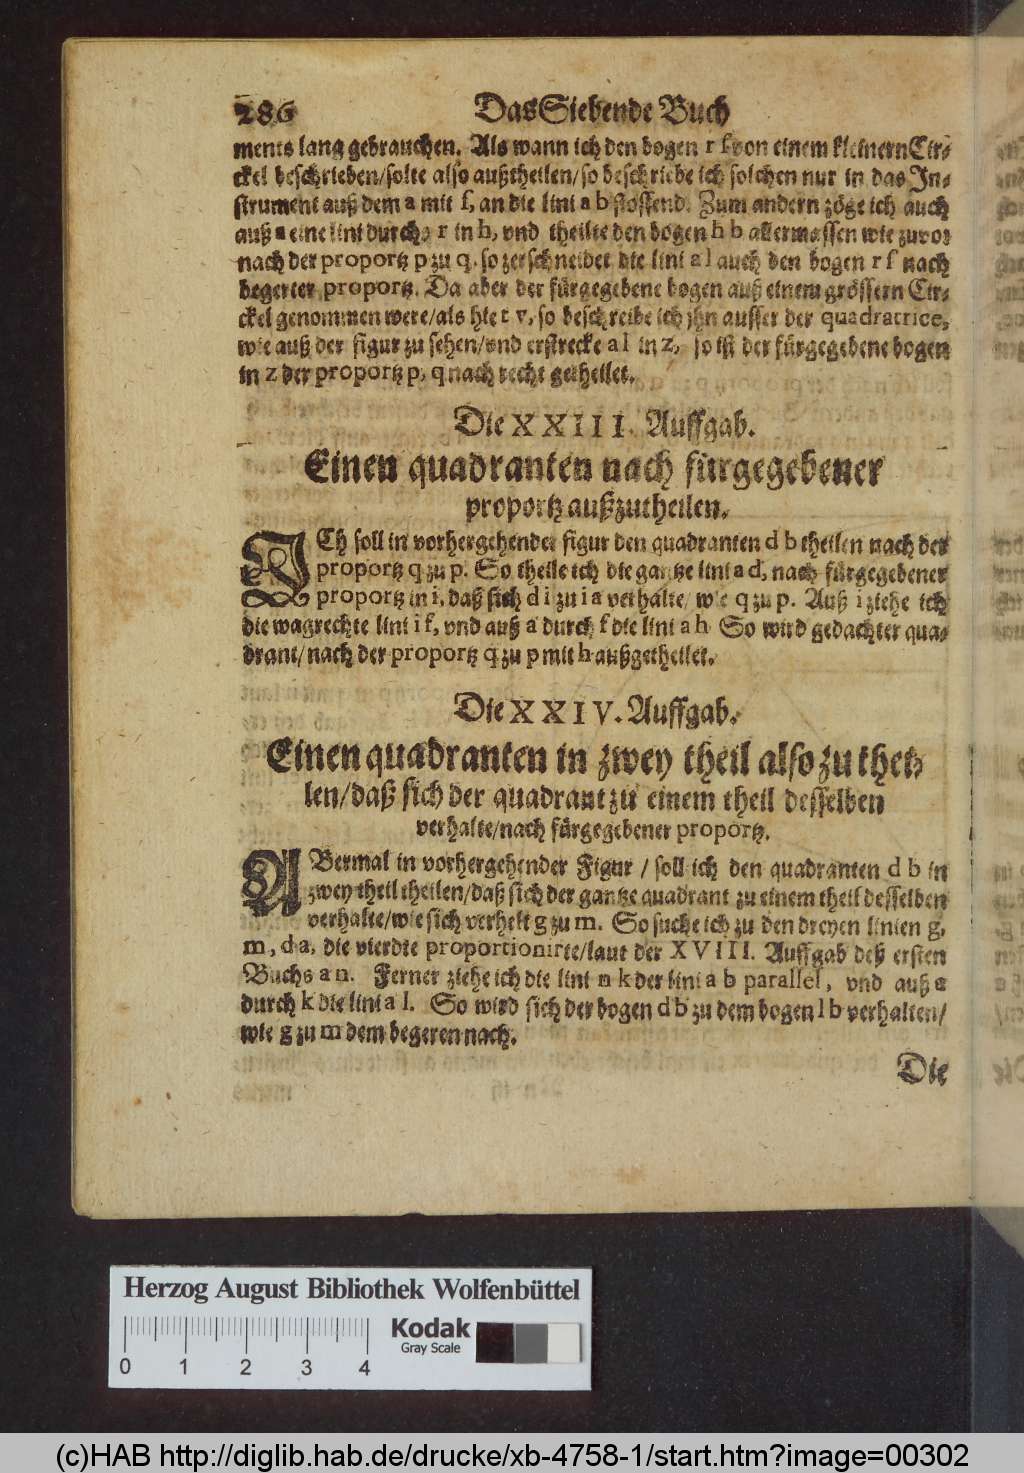 286 Das Siebende Buch
ments lang gebrauchen. Als wann ich den bogen r ſ von einem kleinern Cir-
ckel beschrieben/solte also außtheilen/so beschriebe ich solchen nur in das In-
strument auß dem a mit ſ, an die lini a b stossend. Zum andern zöge ich auch
auß a eine lini durch r in h, vnd theilte den bogen h b allermassen wie zuvor
nach der proportz p zu q, so zerschneidet die lini a l auch den bogen r ſ nach
begerter proportz. Da aber der fürgegebene bogen auß einem grössern Cir-
ckel genommen were/als hie t v, so beschreibe ich jhn ausser der quadratrice,
wie auß der figur zu sehen/vnd erstrecke a l in z, so ist der fürgegebene bogen
in z der proportz p, q nach recht getheilet.
Die XXIII. Auffgab.
Einen quadranten nach fürgegebener
proportz außzutheilen.
ICh soll in vorhergehender figur den quadranten d b theilen nach der
proportz q zu p. So theile ich die gantze lini a d, nach fürgegebener
proportz in i, daß sich d i zu i a verhalte/ wie q zu p. Auß i ziehe ich
die wagrechte lini i f, vnd auß a durch f die lini a h So wird gedachter qua-
drant/nach der proportz q zu p mit h außgetheilet.
Die XXIV. Auffgab.
Einen quadranten in zwey theil also zu thei-
len/daß sich der quadrant zu einem theil desselben
verhalte/nach fürgegebener proportz.
ABermal in vorhergehender Figur / soll ich den quadranten d b in
zwey theil theilen/daß sich der gantze quadrant zu einem theil desselben
verhalte/wie sich verhelt g zu m. So suche ich zu den dreyen linien g,
m, d a, die vierdte proportionirte/laut der XVIII. Auffgab deß ersten
Buchs a n. Ferner ziehe ich die lini n k der lini a b parallel, vnd auß a
durch k die lini a l. So wird sich der bogen d b zu dem bogen l b verhalten/
wie g zu m dem begeren nach.
Die
Herzog August Bibliothek Wolfenbüttel
Kodak
Gray Scale
0 1 2 3 4
(c)HAB http://diglib.hab.de/drucke/xb-4758-1/start.htm?image=00302